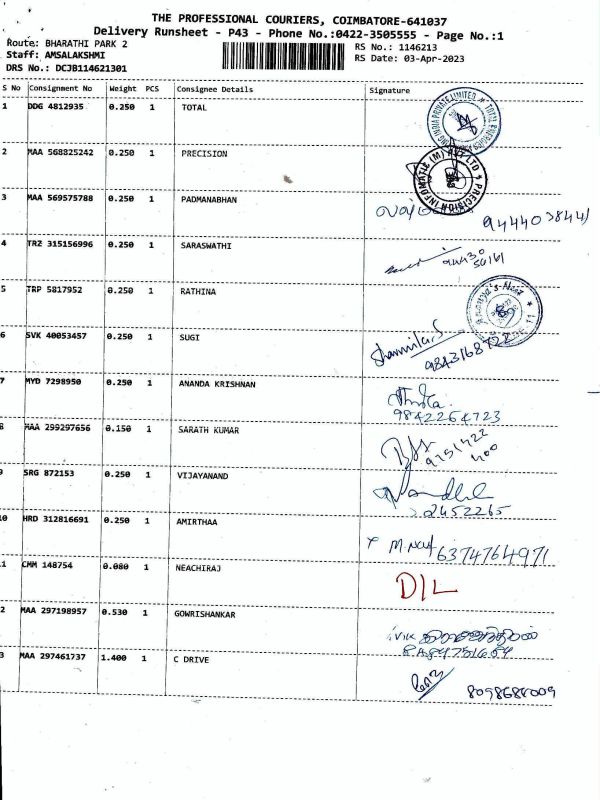 THE PROFESSIONAL COURIERS, COIMBATORE-641037
Delivery Runsheet - P43 - Phone No.:0422-3505555 - Page No.:1
Route: BHARATHI PARK 2
RS No.: 1146213
Staff: AMSALAKSHMI
RS Date: 03-Apr-2023
DRS No.: DCJB114621301
S No Consignment No Weight PCS Consignee Details Signature
1 DDG 4812935 0.250 1 TOTAL
2 MAA 568825242 0.250 1 PRECISION
3 MAA 569575788 0.250 1 PADMANABHAN
4 TRZ 315156996 0.250 1 SARASWATHI
5 TRP 5817952 0.250 1 RATHINA
6 SVK 40053457 0.250 1 SUGI
9843168722
7 MYD 7298950 0.250 1 ANANDA KRISHNAN
9842264723
8 MAA 299297656 0.150 1 SARATH KUMAR
9 SRG 872153 0.250 1 VIJAYANAND
2452265
10 HRD 312816691 0.250 1 AMIRTHAA
6374764971
1 CMM 148754 0.080 1 NEACHIRAJ D/L
2 MAA 297198957 0.530 1 GOWRISHANKAR
3 MAA 297461737 1.400 1 C DRIVE
8098686009